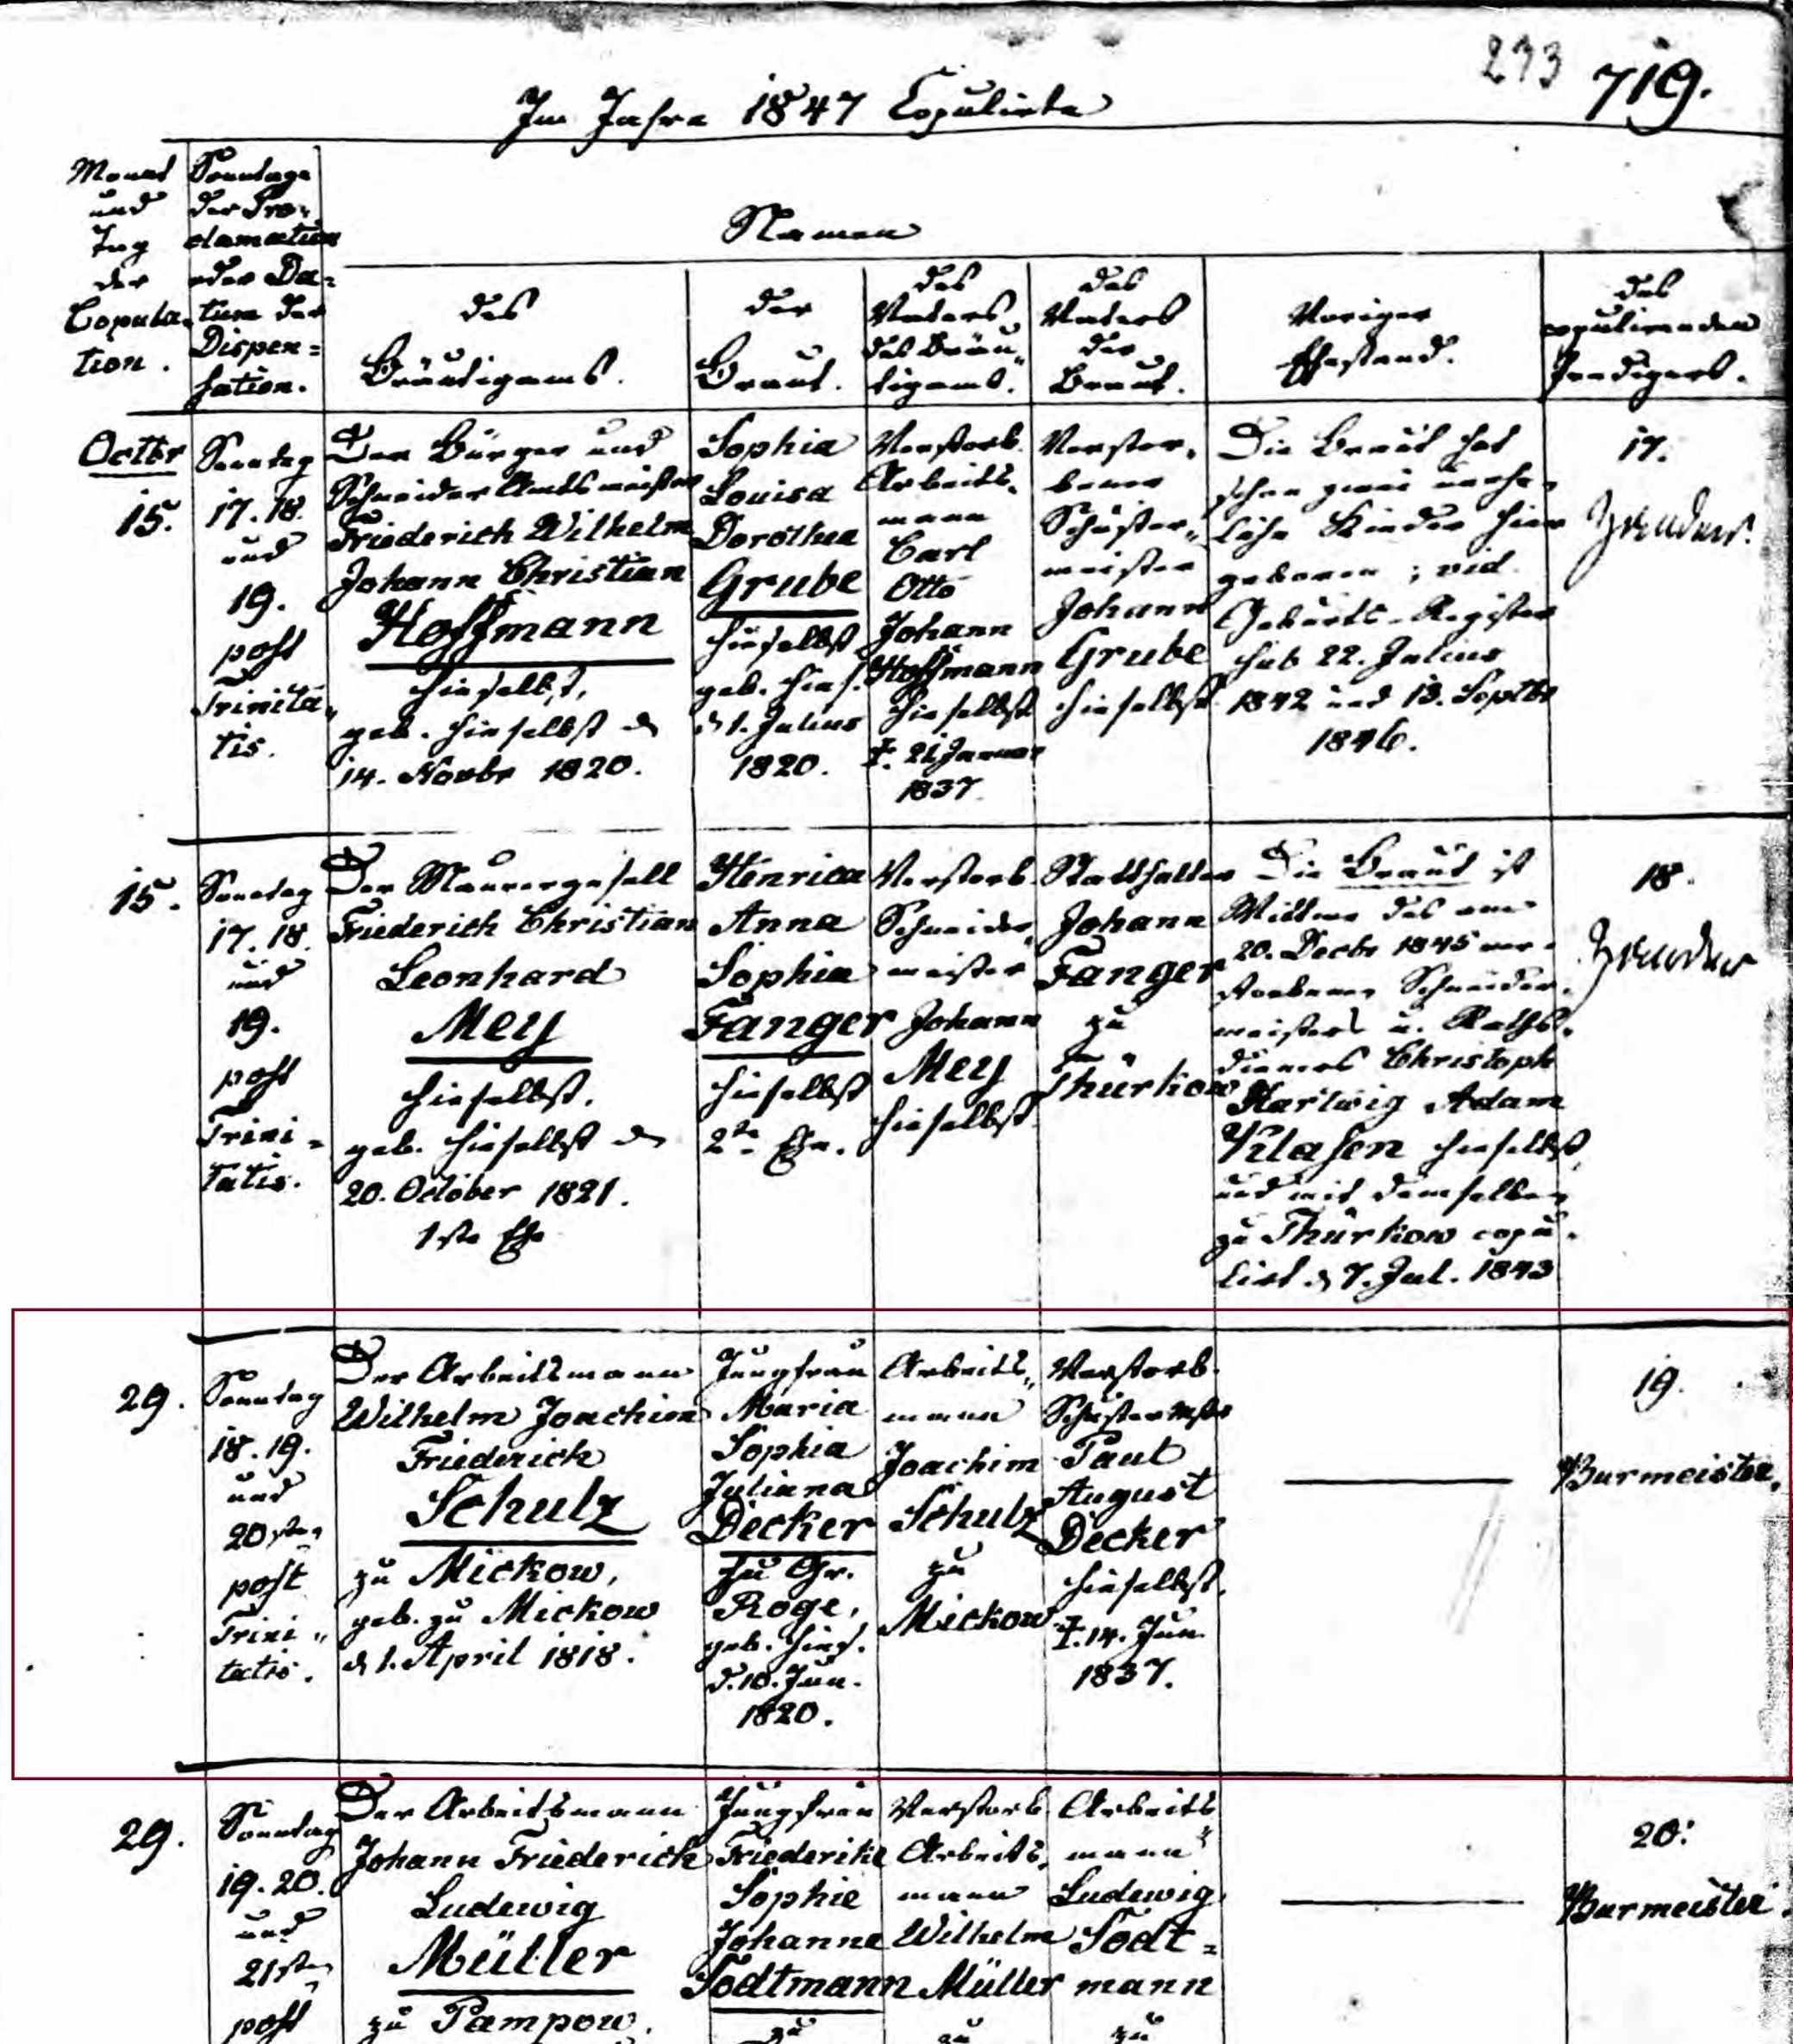 293 719.
Im Jahre 1847 Copulirte
Monat
und
Tag
der
Copula-
tion.
Sonntage
der Pro-
clamation
oder Da-
tum der
Dispen=
sation.
Namen
des
Bräutigams.
der
Braut.
des
Vaters
des Bräu-
tigams.
des
Vaters
der
Braut.
Voriger
Ehestand.
des
copulirenden
Predigers.
Octbr
15.
Sonntag
17. 18.
und
19.
post
Trinita-
tis.
Der Bürger und
Schneider Amtsmeister
Friederich Wilhelm
Johann Christian
Hoffmann
hieselbst,
geb. hieselbst d
14. Novbr 1820.
Sophia
Louisa
Dorothea
Grube
hieselbst
geb. hies.
d 1. Julius
1820.
Verstorb.
Arbeits-
mann
Carl
Otto
Johann
Hoffmann
hieselbst
†. 21 Januar
1837.
Verstor-
bener
Schuster-
meister
Johann
Grube
hieselbst.
Die Braut hat
schon zwei unehe-
liche Kinder hier
geboren; vid.
Geburts-Register
sub 22. Julius
1842 und 13. Septbr
1846.
17.
15.
Sonntag
17. 18.
und
19.
post
Trini=
tatis.
Der Maurergesell
Friederich Christian
Leonhard
Mey
hieselbst.
geb. hieselbst d
20. October 1821.
1ste Ehe
Henrica
Anna
Sophia
Fanger
hieselbst
2te Ehe.
Verstorb.
Schneider-
meister
Johann
Mey
hieselbst.
Statthalter
Johann
Fanger
zu
Thürkow
Die Braut ist
Wittwe des am
20. Decbr 1845 ver-
storbenen Schneider-
meisters u. Raths-
dieners Christoph
Hartwig Adam
Klasen hieselbst,
und mit demselben
zu Thürkow copu-
lirt d 7. Jul. 1843
18.
29.
Sonntag
18. 19.
und
20sten
post
Trini-
tatis.
Der Arbeitsmann
Wilhelm Joachim
Friederich
Schulz
zu Mickow,
geb. zu Mickow
d 1. April 1818.
Jungfrau
Maria
Sophia
Juliana
Decker
zu Gr.
Roge,
geb. hies.
d. 10. Jun.
1820.
Arbeits-
mann
Joachim
Schulz
zu
Mickow
Verstorb.
Schustermstr
Paul
August
Decker
hieselbst.
†. 14. Jun.
1837.
19.
Burmeister.
29.
Sonntag
19. 20.
und
21sten
post
Der Arbeitsmann
Johann Friederich
Ludewig
Müller
zu Pampow.
Jungfrau
Friederike
Sophie
Johanne
Todtmann
zu
Verstorb.
Arbeits-
mann
Wilhelm
Müller
zu
Arbeits
mann
Ludewig
Todt=
mann
zu
20.
Burmeister.